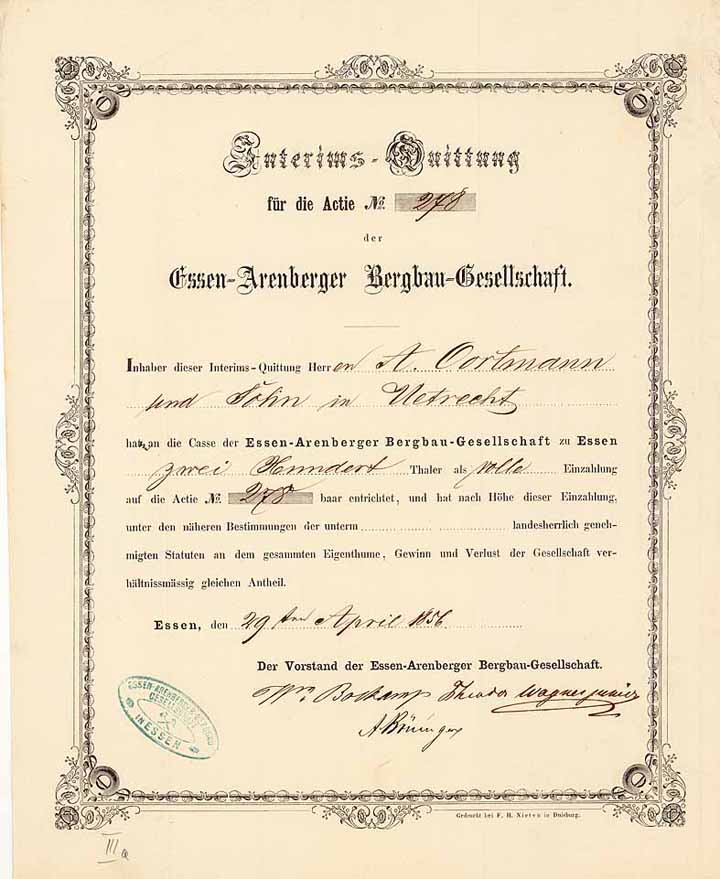 Interims-Quittung
für die Actie No. 278
der
Essen-Arenberger Bergbau-Gesellschaft.
Inhaber dieser Interims-Quittung Herren A. Oortmann
und Sohn in Uetrecht
hat an die Casse der Essen-Arenberger Bergbau-Gesellschaft zu Essen
zwei Hundert Thaler als volle Einzahlung
auf die Actie No. 278 baar entrichtet, und hat nach Höhe dieser Einzahlung,
unter den näheren Bestimmungen der unterm landesherrlich geneh-
migten Statuten an dem gesammten Eigenthume, Gewinn und Verlust der Gesellschaft ver-
hältnissmässig gleichen Antheil.
Essen, den 29ten April 1856
Der Vorstand der Essen-Arenberger Bergbau-Gesellschaft.
Wm Bockamp Theodor Wagner junior
A Brüninger
ESSEN-ARENBERGER BERGBAU
GESELLSCHAFT
IN ESSEN
Gedruckt bei F. H. Nieten in Duisburg.
III a